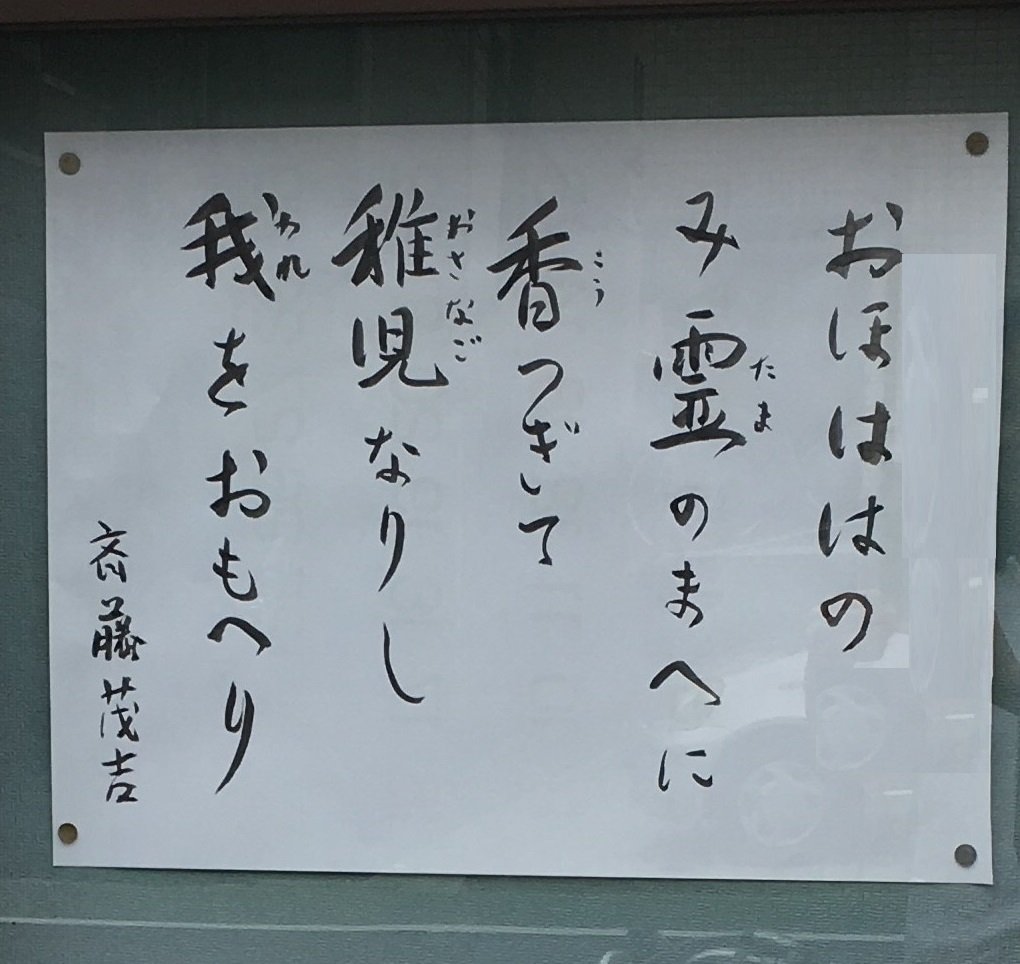 おほははの
み霊のまへに
たま
香つぎて
こう
稚児なりし
おさなご
我をおもへり
われ
斎藤茂吉